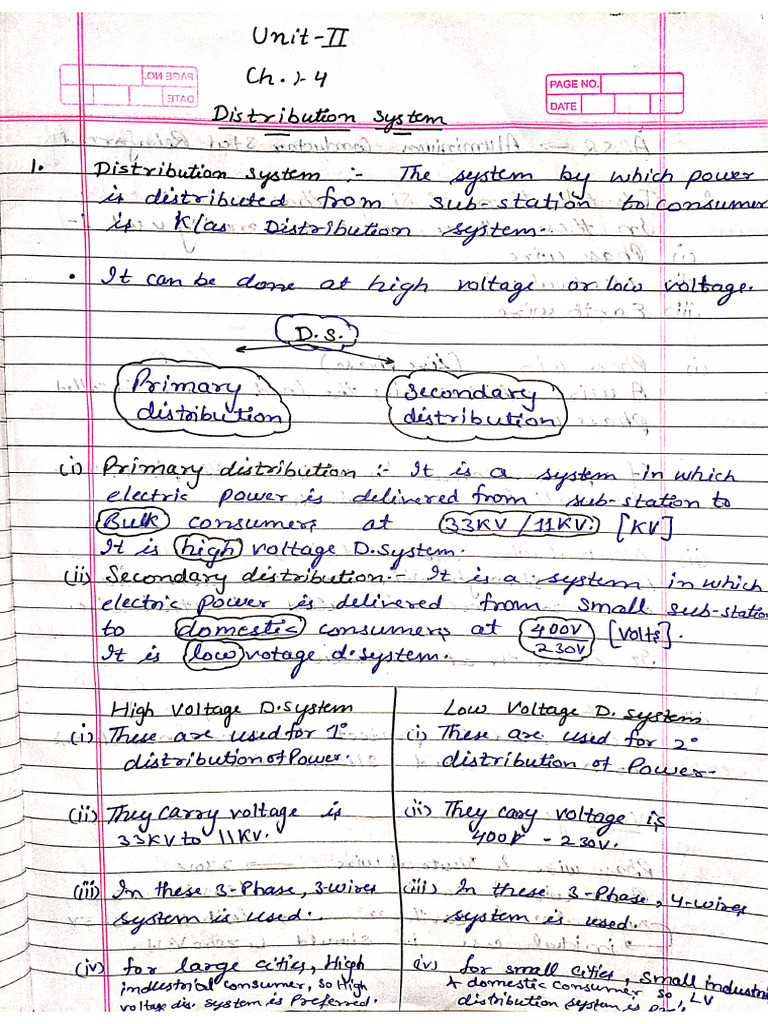 Unit-II
Ch.:- 4
PAGE NO.
DATE
PAGE NO.
DATE
Distribution System
1. Distribution System :- The system by which power
is distributed from sub-station to consumer
is K/as Distribution system.
• It can be done at high voltage or low voltage.
D.S.
Primary
distribution
Secondary
distribution
(i) Primary distribution :- It is a system in which
electric power is delivered from sub-station to
Bulk consumers at 33KV/11KV. [KV]
It is high voltage D.system.
(ii) Secondary distribution:- It is a system in which
electric power is delivered from small sub-station
to domestic consumers at 400V/230V [Volts].
It is low votage d.system.
High Voltage D.System
(i) These are used for 1°
distribution of Power.
(ii) They carry voltage is
33KV to 11KV.
(iii) In these 3-Phase, 3-wires
system is used.
(iv) for large cities, High
industrial consumer, so High
voltage dis. system is Preferred.
Low Voltage D. system
(i) These are used for 2°
distribution of Power.
(ii) They cary voltage is
400V - 230V.
(iii) In these 3-Phase, 4-wires
system is used.
(iv) for small cities, small industri
+ domestic consumer so, LV
distribution system is